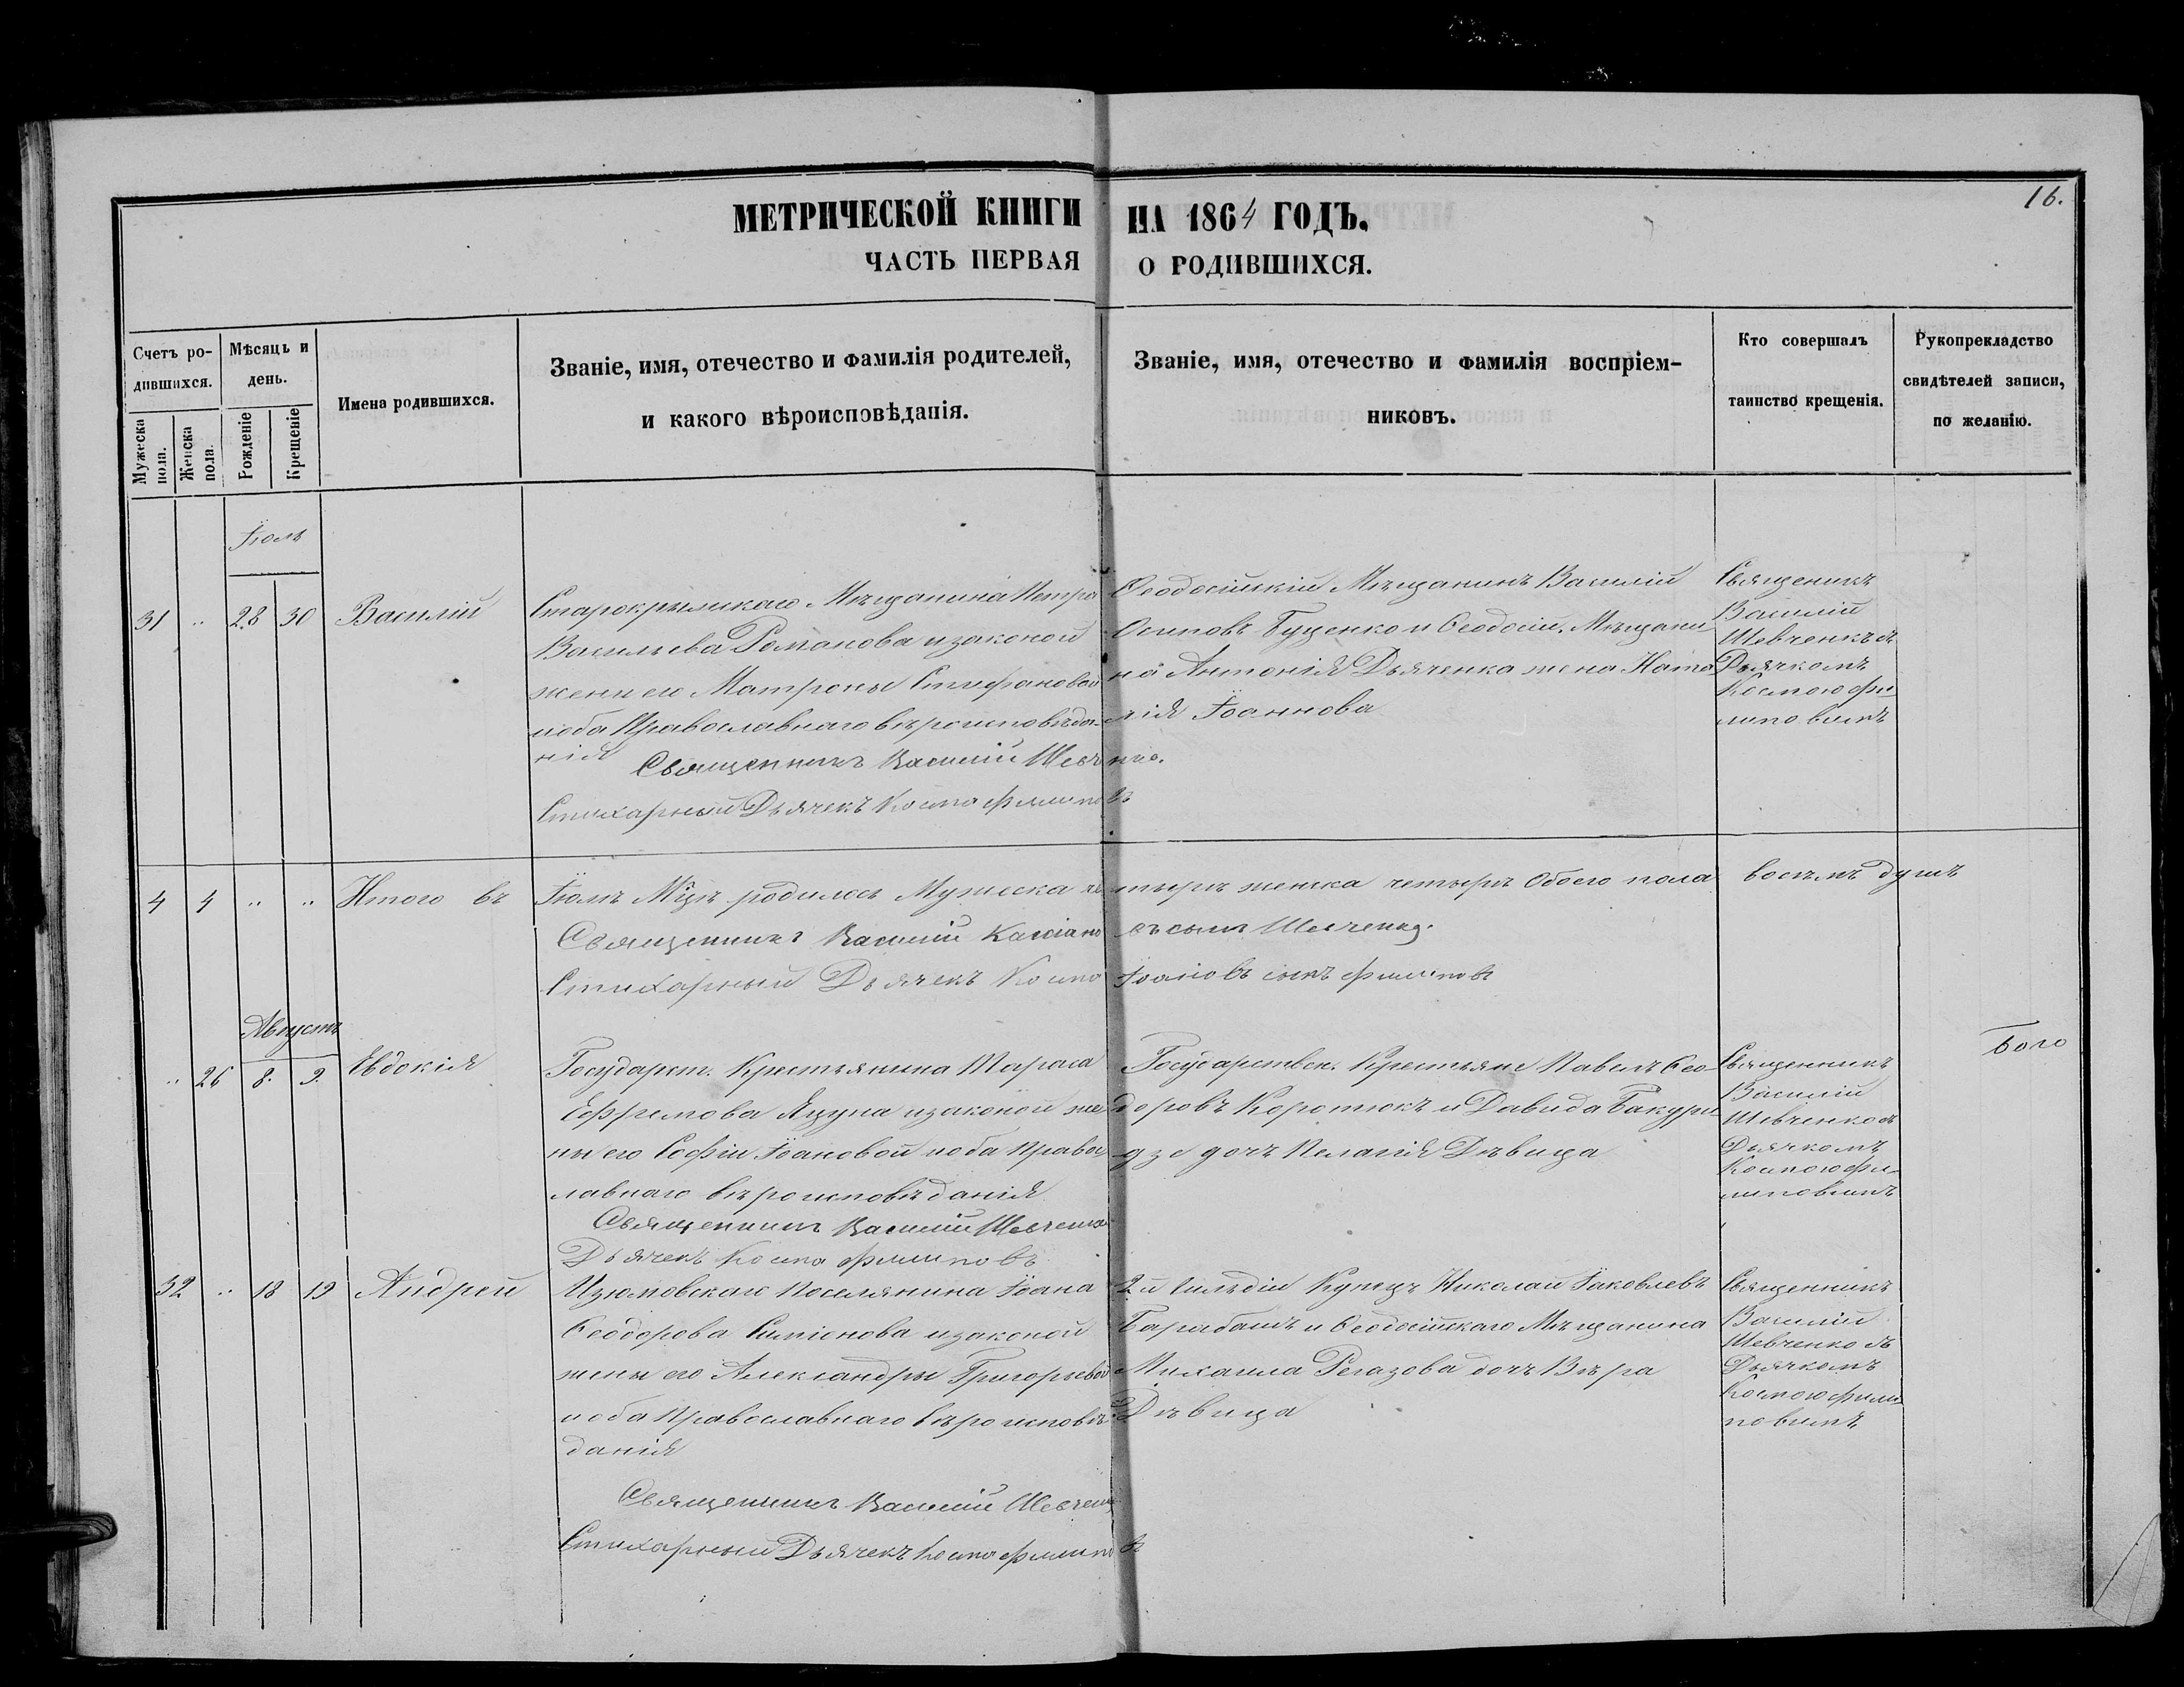 16.
МЕТРИЧЕСКОЙ КНИГИ НА 1864 ГОДЪ.
ЧАСТЬ ПЕРВАЯ О РОДИВШИХСЯ.
Счетъ родившихся.
Мужеска пола.
Женска пола.
Мѣсяцъ и день.
Рожденіе
Крещеніе
Имена родившихся.
Званіе, имя, отечество и фамилія родителей,
и какого вѣроисповѣданія.
Званіе, имя, отечество и фамилія воспріем-
никовъ.
Кто совершалъ
таинство крещенія.
Рукоприкладство
свидѣтелей записи,
по желанію.
Іюль
31 .. 28 30 Василій
Старокрымскаго Мѣщанина Петра
Васильева Романова изаконой
жены его Матроны Стефановой
иоба Православнаго вѣроисповѣда-
нія
Священникъ Василій Шевченко.
Стихарный Дьячекъ Косма Филиповъ
Феодосійскій Мѣщанинъ Василій
Осиповъ Буценко и Феодосій. Мѣщани
на Антонія Дьяченка жена Ната
лія Іоаннова
Священикъ
Василій
Шевченкъ съ
Дьячкомъ
Космою Фи
липовымъ
4 4 .. .. Итого въ Іюлѣ Мцѣ родилось Мужеска четырѣ женска четырѣ Обоего пола восѣмъ душъ
Священникъ Василій Кассіановъ сынъ Шевченко.
Стихарный Дьячекъ Косма Іоановъ сынъ Филиповъ
Августъ
.. 26 8. 9. Евдокія
Государст. Крестьянина Тараса
Ефремова Яцуна изаконой же
ны его Софіи Іоановой иоба Правос
лавнаго вѣроисповѣданія
Священникъ Василій Шевченко
Дьячекъ Косма Филиповъ
Государствен. Крестьяне Павелъ Фео
доровъ Коротюкъ и Давида Бакури
дзе дочь Пелагія Дѣвица
Священникъ
Василій
Шевченко съ
Дьячкомъ
Космою Фи-
липовымъ
32 .. 18 19 Андрей
Изюмовскаго Поселянина Іоана
Феодорова Симіонова изаконой
жены его Александры Григорьевой
иоба Православнаго вѣроисповѣ
данія
Священникъ Василій Шевченко
Стихарный Дьячекъ Косма Филиповъ
2й Гильдіи Купецъ Николай Іаковлевъ
Барабашъ и Феодосійскаго Мѣщанина
Михаила Регазова дочь Вѣра
Дѣвица
Священникъ
Василій
Шевченко съ
Дьячкомъ
Космою Фили
повымъ